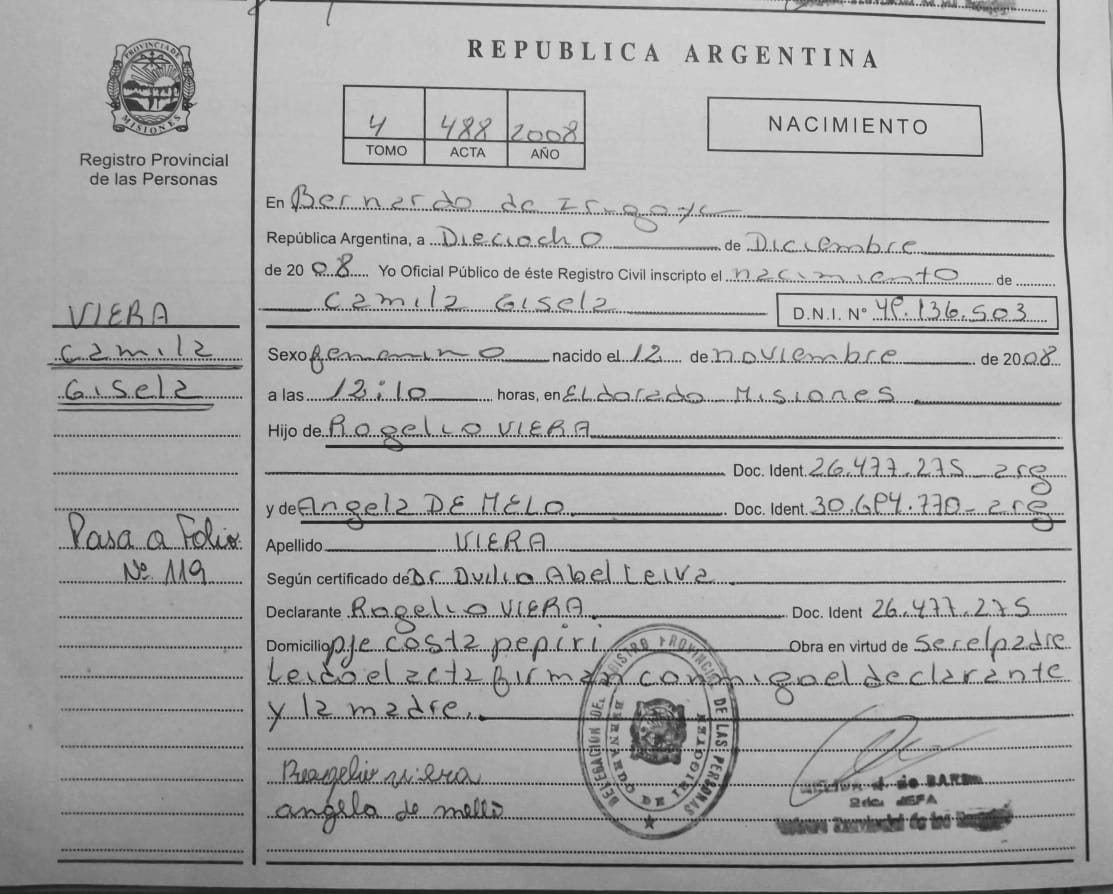 PROVINCIA DE
MISIONES
Registro Provincial
de las Personas
REPUBLICA ARGENTINA
4 488 2008
TOMO ACTA AÑO
NACIMIENTO
En Bernardo de Irigoye
República Argentina, a Dieciocho de Diciembre
de 2008 Yo Oficial Público de éste Registro Civil inscripto el nacimiento de
Camila Gisela D.N.I. N° 48.136.503
VIERA
Camila
Gisela
Sexo femenino nacido el 12 de noviembre de 2008
a las 12:10 horas, en Eldorado Misiones
Hijo de Rogelio VIERA
Doc. Ident. 26.477.275 arg
y de Angela DE MELO Doc. Ident. 30.684.770 - arg
Pasa a Folio
Nº 119
Apellido VIERA
Según certificado de Dr Duilio Abel Leiva
Declarante Rogelio VIERA Doc. Ident 26.477.275
Domicilio pje costa pepiri Obra en virtud de Ser el padre
Leido el acta firman conmigo el declarante
y la madre.
DELEGACION DEL REGISTRO PROVINCIAL DE LAS PERSONAS
BERNARDO DE IRIGOYEN
Roogelio viera
angela de mello